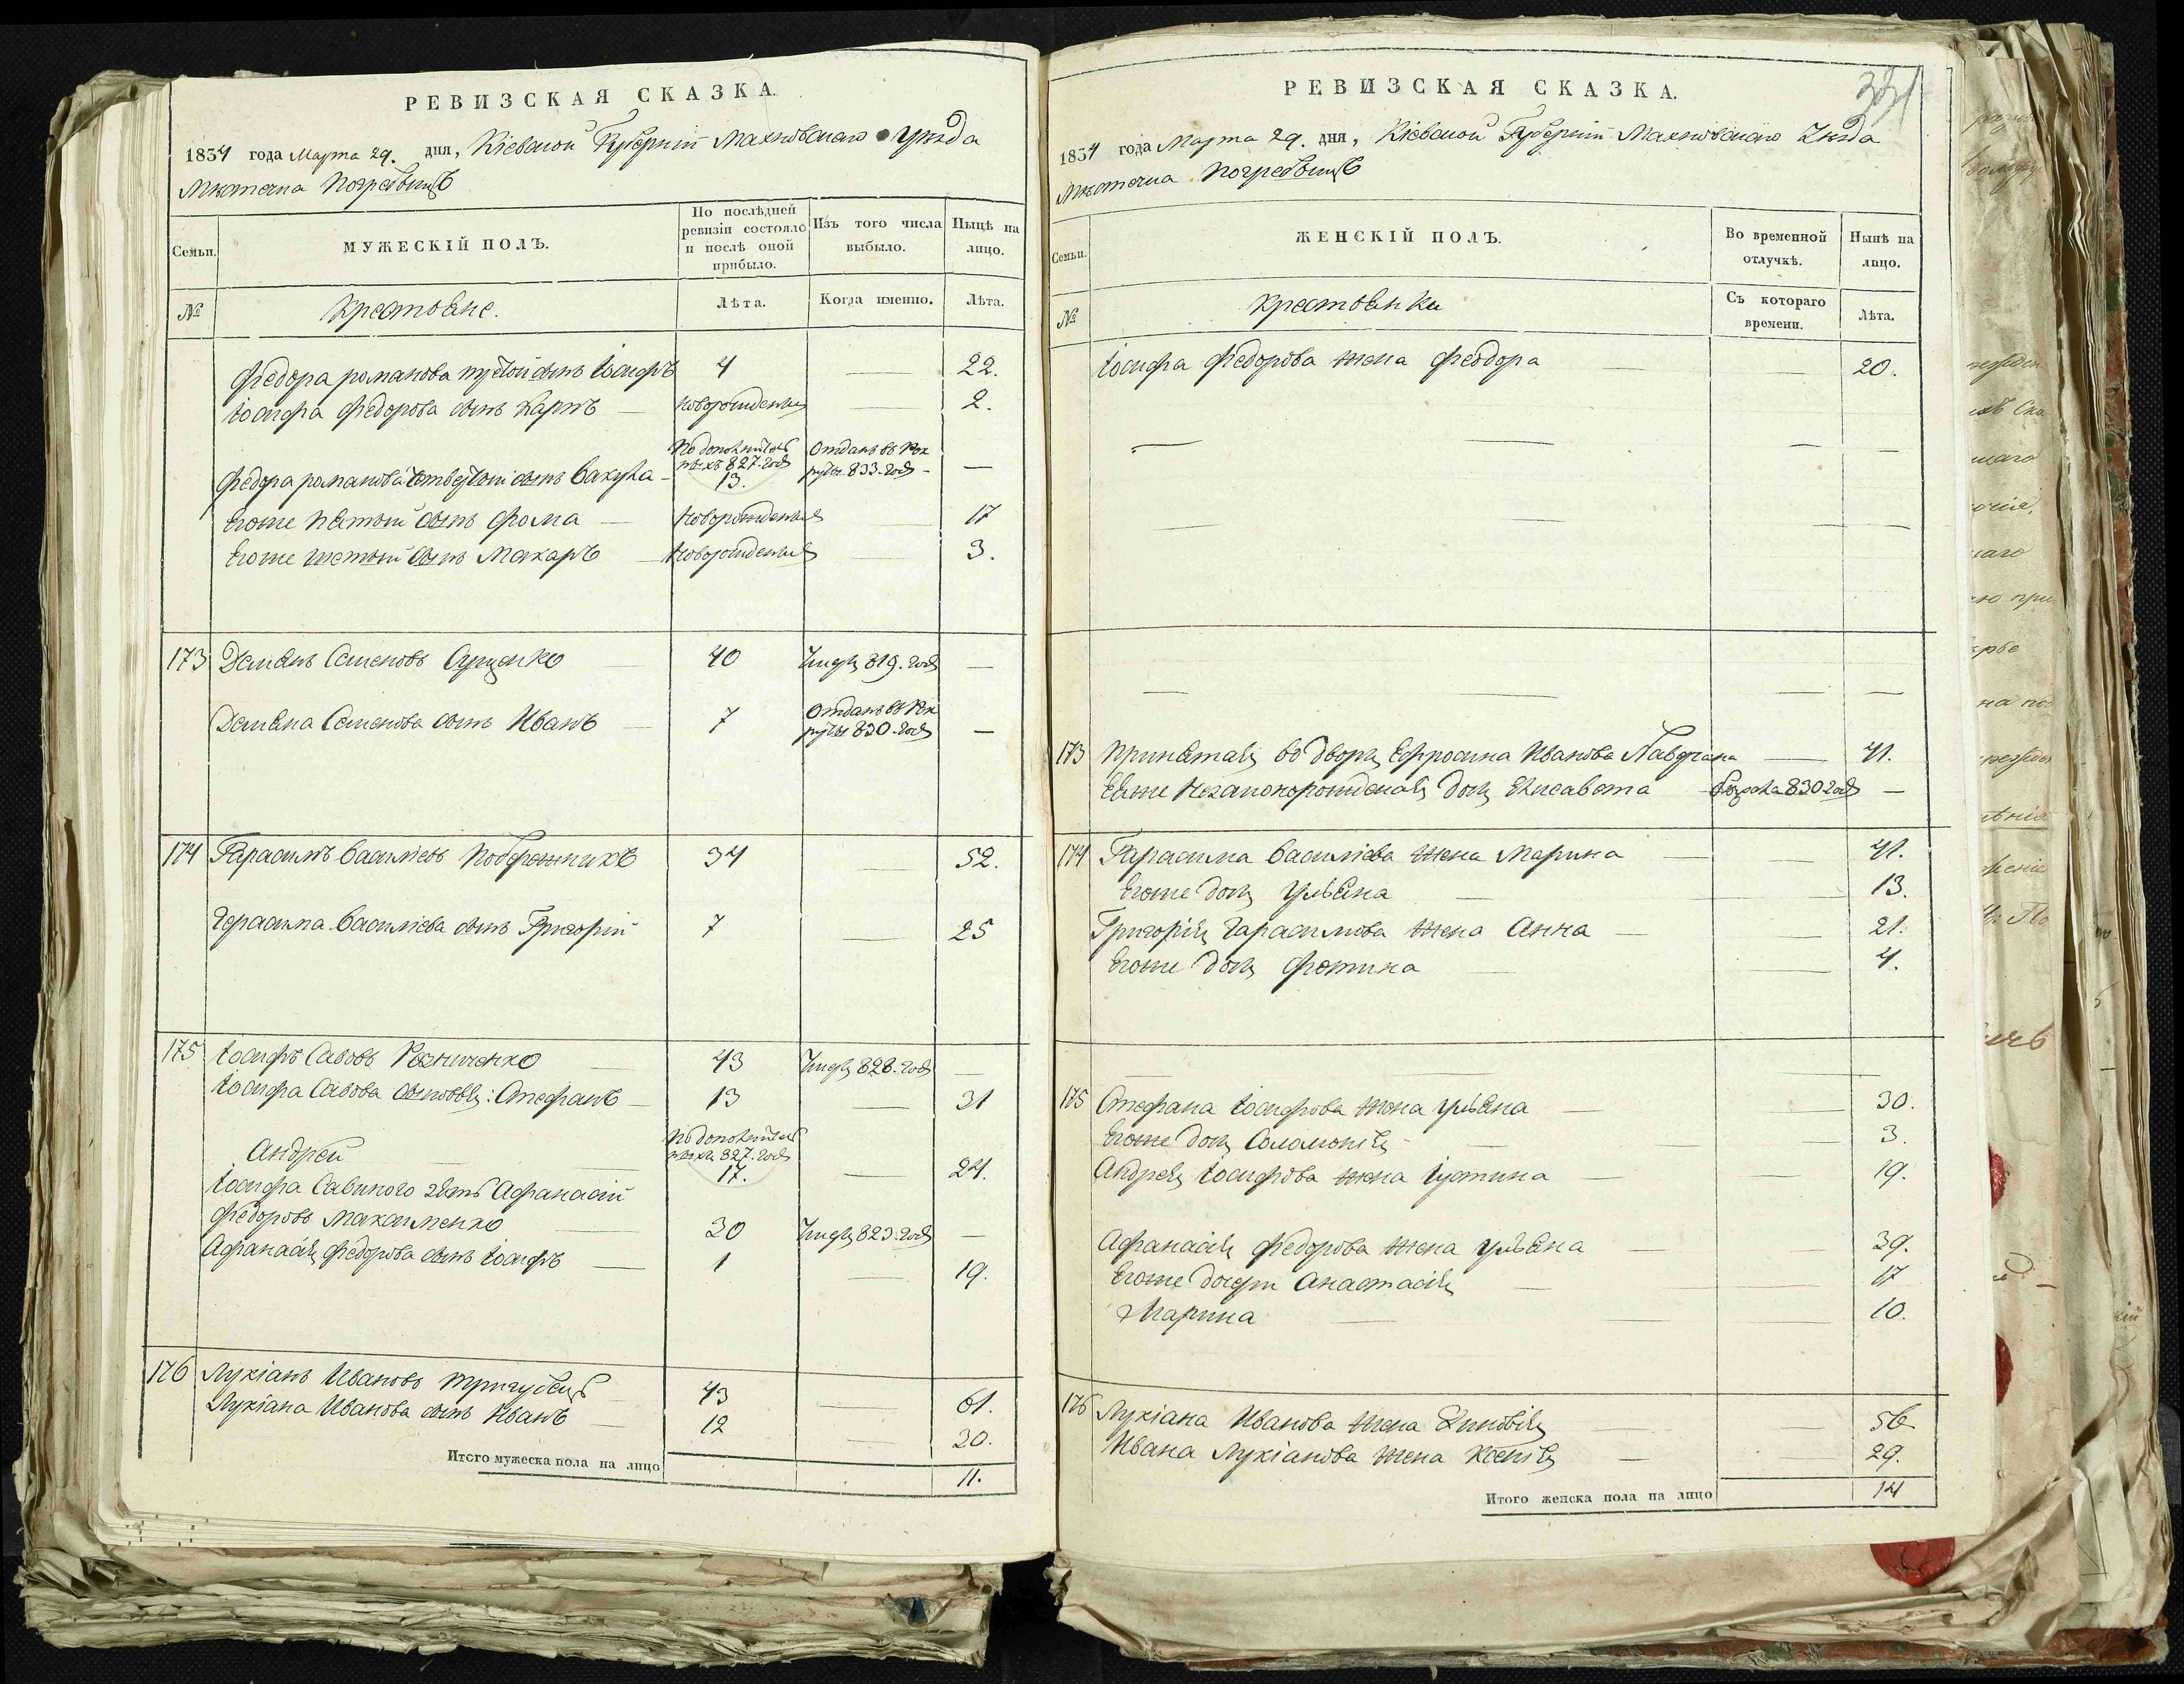 РЕВИЗСКАЯ СКАЗКА.
1834 года Марта 29. дня, Кіевской Губерніи Махновскаго уѣзда
Мѣстечка Погребищъ
Семьи.
МУЖЕСКІЙ ПОЛЪ.
По послѣдней ревизіи состояло и послѣ оной прибыло.
Изъ того числа выбыло.
Нынѣ на лицо.
№
Крестьяне.
Лѣта.
Когда именно.
Лѣта.
Федора романова третій сынъ Іосифъ 4 — 22.
Іосифа Федорова сынъ Карпъ — новорожденный — 2.
Федора романова четвертый сынъ Вакула — По дополнительнымъ 827. года 13. Отданъ въ Рекруты 833. года —
Егоже пятый сынъ Фома — Новорожденный 17
Егоже шестый сынъ Макаръ — Новорожденный 3.
173 Демянъ Семеновъ 40 Умеръ 819. года —
Демяна Семенова сынъ Иванъ — 7 Отданъ въ Рекруты 830. года —
174 Гарасимъ Василіевъ Побережникъ 34 — 52.
Герасима Василіева сынъ Григорій 7 — 25
175 Іосифъ Савовъ Резниченко — 43 Умеръ 828. года —
Іосифа Савова сыновья: Стефанъ — 13 — 31
Андрей — По дополнительнымъ 827. года 17. — 24.
Іосифа Савиного зять Афанасій
Федоровъ Максименко — 30 Умеръ 823. года —
Афанасія Федорова сынъ Іосифъ — 1 — 19.
176 Лукіанъ Ивановъ Тригубецъ 43 — 61.
Лукіана Иванова сынъ Иванъ — 12 — 30.
Итого мужеска пола на лицо 11.
331
РЕВИЗСКАЯ СКАЗКА.
1834 года Марта 29. дня, Кіевской Губерніи Махновскаго Уѣзда
Мѣстечка Погребищъ
Семьи.
ЖЕНСКІЙ ПОЛЪ.
Во временной отлучкѣ.
Нынѣ на лицо.
№
Крестьянки
Съ котораго времени.
Лѣта.
Іосифа Федорова жена Феодора — — 20.
173 Принятая во дворъ Ефросина Иванова — 41.
Еяже Незаконорожденая дочь Елисавета — 830 года —
174 Гарасима Василіева жена Марина — — 41.
Егоже дочь Ульяна — — 13.
Григорія Гарасимова жена Анна — — 21.
Егоже дочь Фотина — — 4.
175 Стефана Іосифова жена Ульяна — — 30.
Егоже дочь Соломонія — — 3.
Андрея Іосифова жена Іустина — — 19.
Афанасія Федорова жена Ульяна — — 39.
Егоже дочери Анастасія — — 17
Марина — — 10.
176 Лукіана Иванова жена Зиновія — — 56
Ивана Лукіанова жена Ксенія — 29.
Итого женска пола на лицо 14